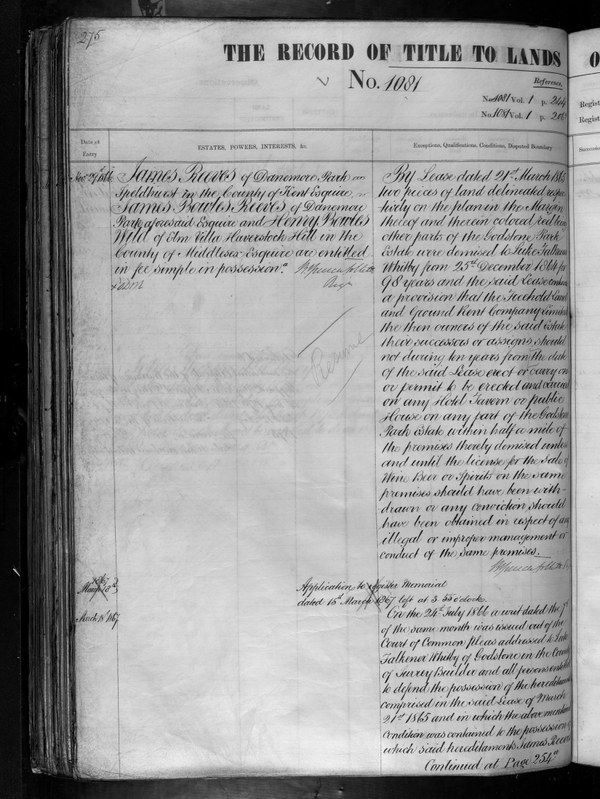 275
THE RECORD OF TITLE TO LANDS
No. 1081
Reference
No. 1081 Vol. 1 p. 244
No. 1081 Vol. 1 p.
Date of Entry
ESTATES, POWERS, INTERESTS, &c.
Exceptions, Qualifications, Conditions, Disputed Boundary
James Reeves of Danemore Park in
Speldhurst in the County of Kent Esquire
James Bowles Reeves of Danemore
Park aforesaid Esquire and Henry Bowles
Wild of Elm Villa Haverstock Hill in the
County of Middlesex Esquire are entitled
in fee simple in possession.
By Lease dated 21st March 1865
two pieces of land delineated respec
tively on the plan in the Margin
thereof and therein colored red
other parts of the Godstone Park
Estate were demised to Luke Falkener
Whitby from 25th December 1864 for
98 years and the said Lease contains
a provision that the Freehold Land
and Ground Rent Company Limited
the then owners of the said Estate
their successors or assigns should
not during ten years from the date
of the said Lease erect or carry on
or permit to be erected and carried
on any Hotel Tavern or public
House on any part of the Godstone
Park Estate within half a mile of
the premises thereby demised unless
and until the license for the Sale of
Wine Beer or Spirits on the same
premises should have been with-
drawn or any conviction should
have been obtained in respect of any
illegal or improper management or
conduct of the same premises.
Application to register Memorial
dated 15th March 1867 left at 3.55 o'clock
March 18th 1867
On the 24th July 1866 a writ dated the 7
of the same month was issued out of the
Court of Common Pleas addressed to Luke
Falkener Whitby of Godstone in the County
of Surrey Builder and all persons entitled
to defend the possession of the hereditaments
comprised in the said Lease of March
21st 1865 and in which the above mentioned
Condition was contained to the possession of
which said hereditaments James Reeves
Continued at Page 254